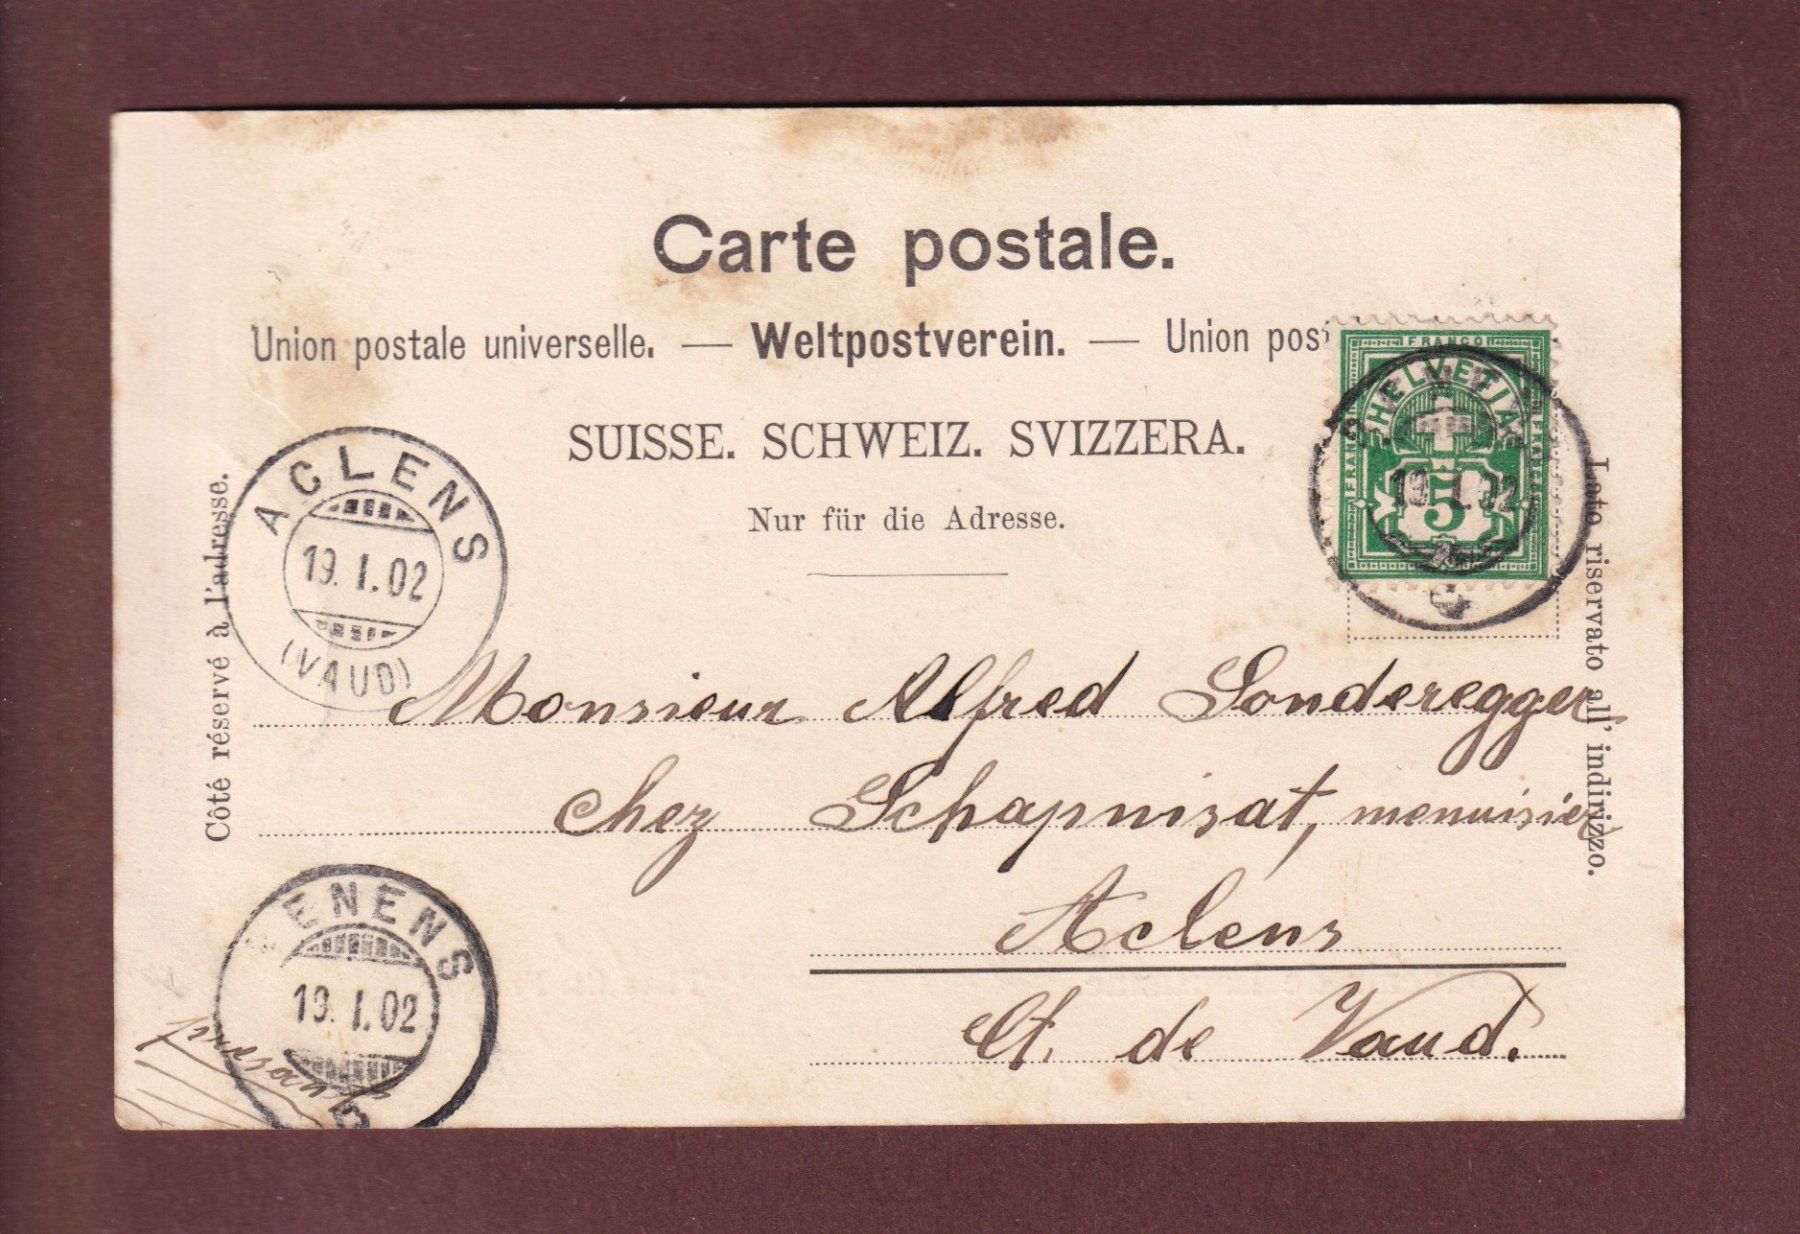 Carte postale.
Union postale universelle. — Weltpostverein. — Union post
SUISSE. SCHWEIZ. SVIZZERA.
Nur für die Adresse.
FRANCO
HELVETIA
FRANCO
5
19. I. 02
ACLENS
19. I. 02
(VAUD)
Côté réservé à l'adresse.
Lato riservato all' indirizzo.
Monsieur Alfred Sonderegger
chez Schapnisat, menuisier
Aclens
Ct. de Vaud.
ENENS
19. I. 02
pressant